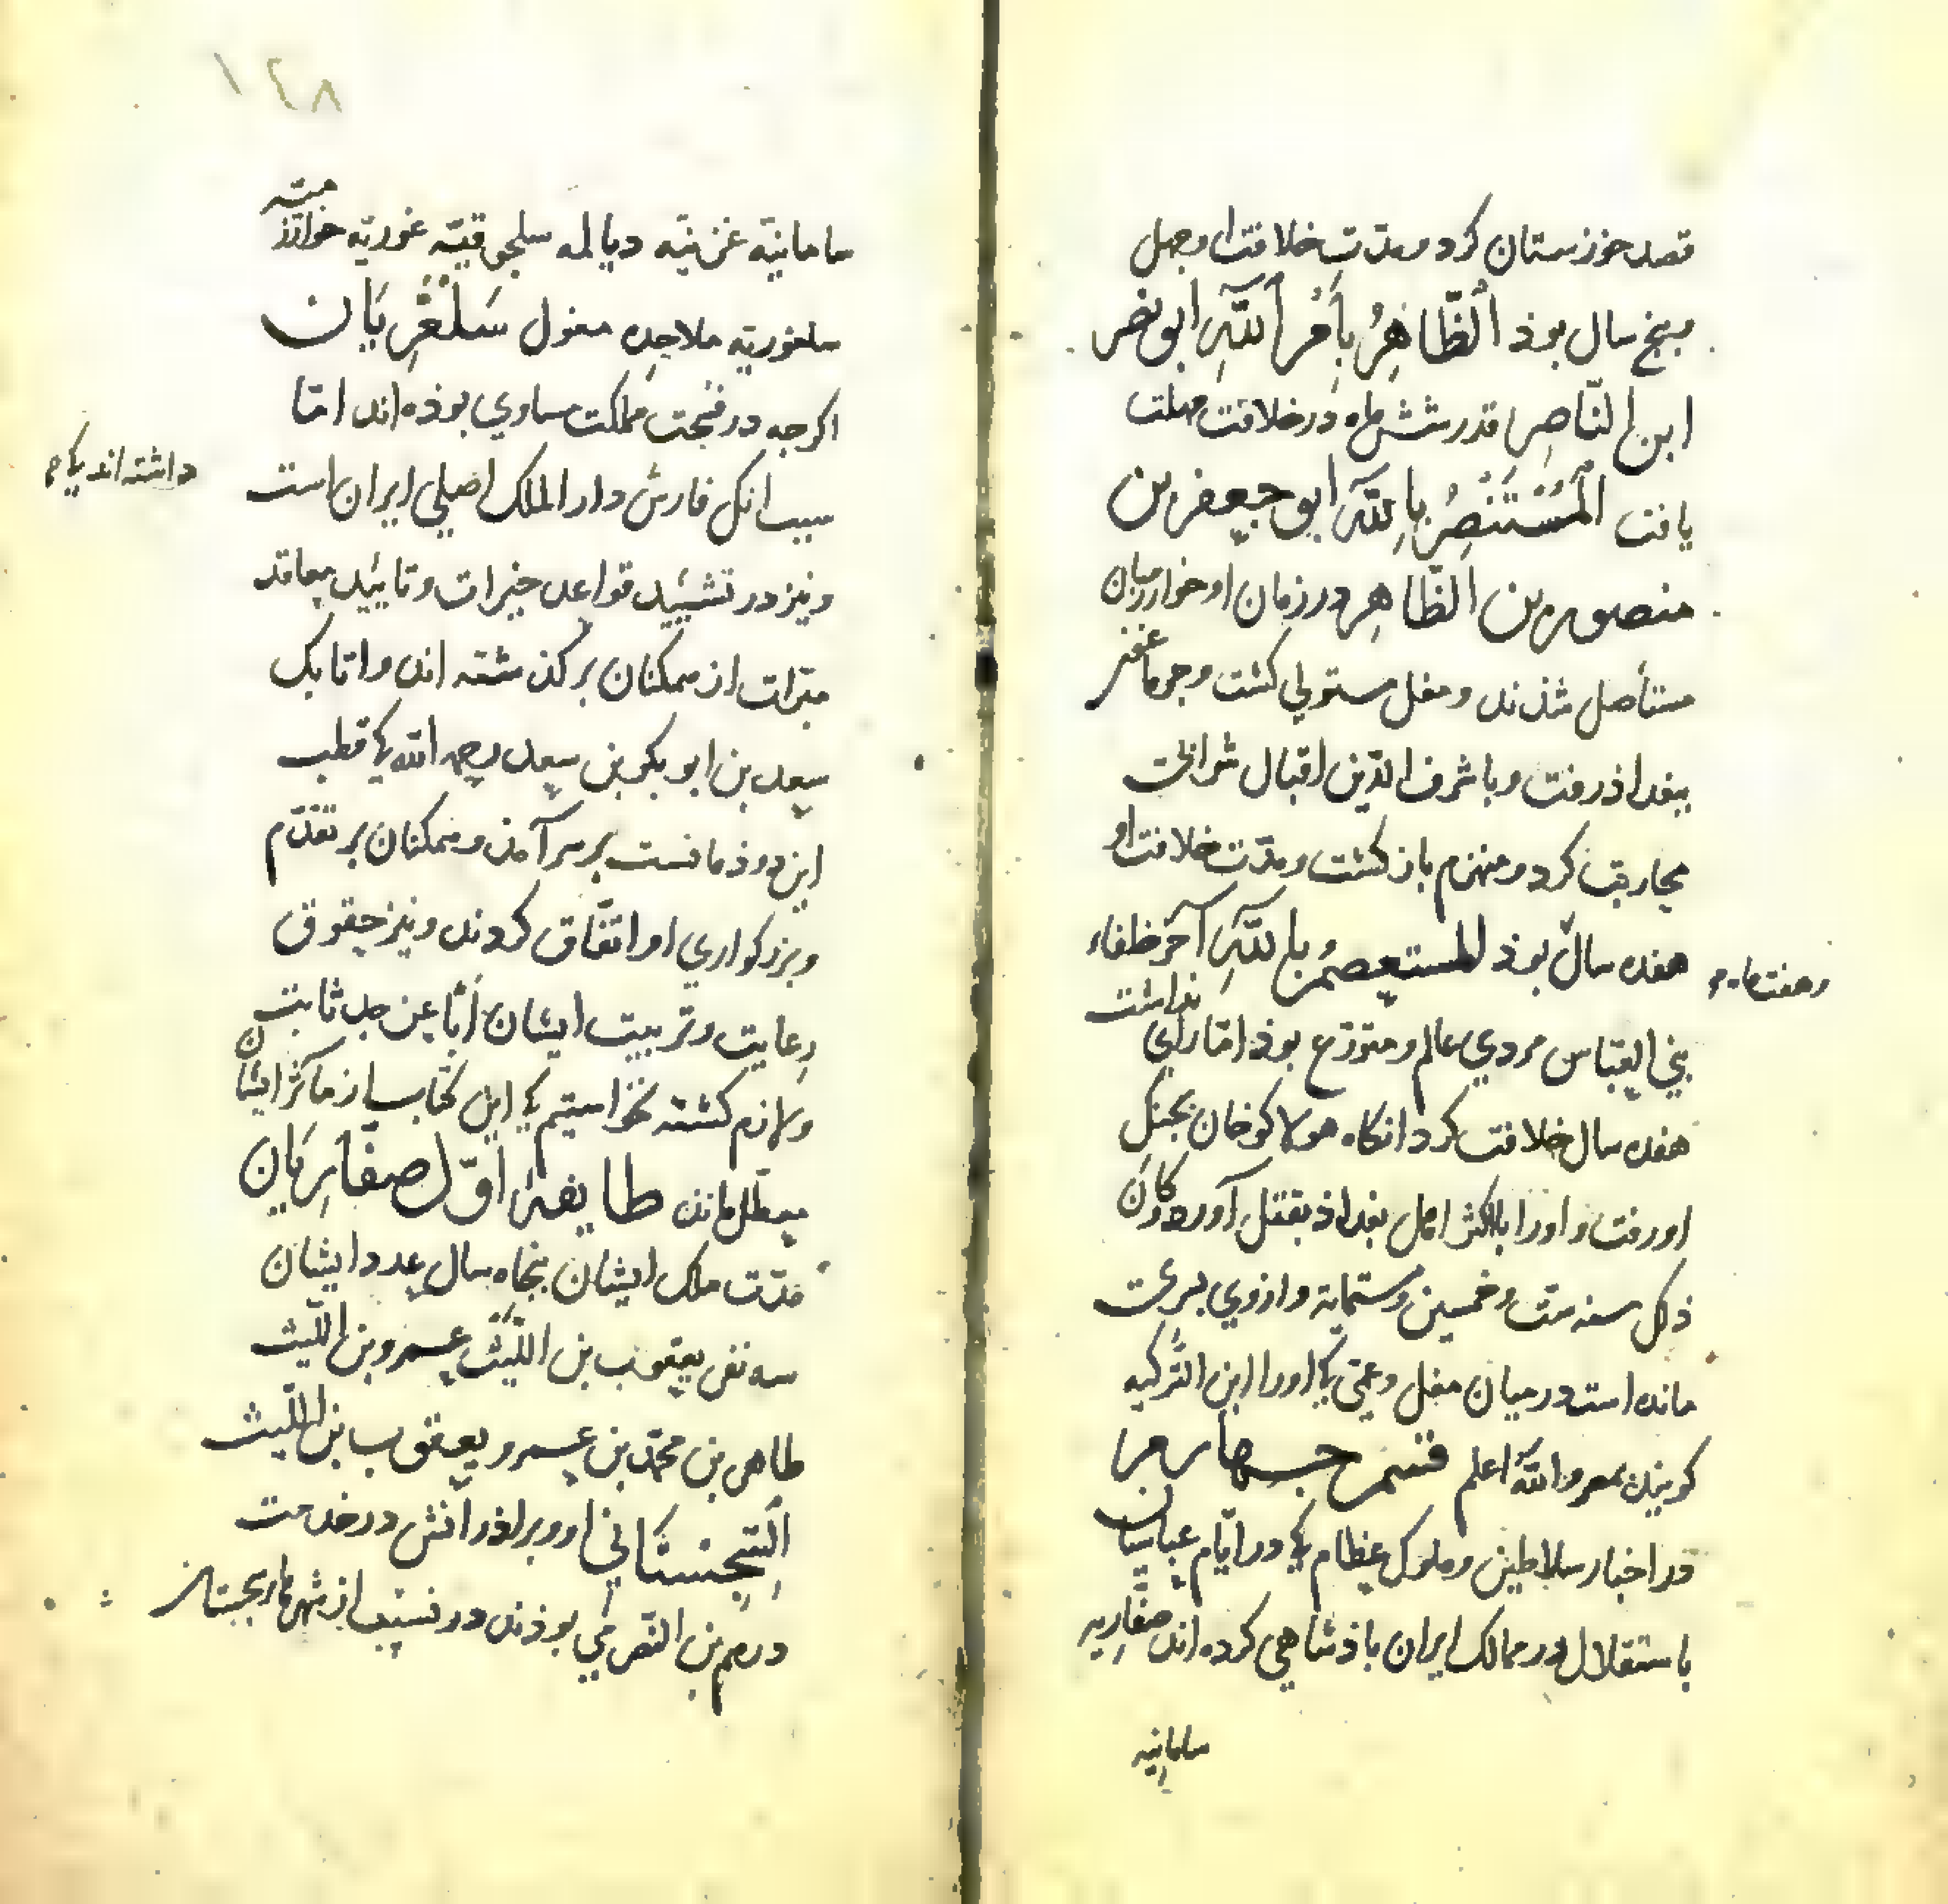 قصد خوزستان کرد و مدّت خلافت او چهل
و پنج سال بوذ الظَّاهِرُ بِأَمْرِ اللّٰهِ ابو نصر
ابن الناصِر قدر شش ماه در خلافت مهلت
یافت الْمُسْتَنْصِرُ بِاللّٰهِ ابو جعفر بن
منصور بن الظاهِر در زمان او خوارزمیان
مستأصل شذند و مغل مستولی کشت و جرماغفر
ببغداذ رفت و با شرف الدّین اقبال شرابی
محاربت کرد و منهزم باز کشت و مدّت خلافت او
هفده سال بوذ المستعصمُ باللّٰهِ آخر خلفاء
وهفت ماه
بنی العبّاس مردی عالم و متورّع بوذ امّا رأی نداشت
هفده سال خلافت کرد انکاه هولاکو خان بجنک
او رفت و او را با اکثر اهل بغداذ بقتل آورد و کَانَ
ذلک سنه ستّ و خمسین و ستّمایة و از وی
مانده است در میان مغل و عمّی کی او را ابن التُّرکیه
کویند بمصر و اللّٰه اعلم قسم چهارم
در اخبار سلاطین و ملوک عظام کی در ایّام عباسیان
باستقلال در ممالک ایران باذشاهی کرده اند صفّاریه
سامانیه
۱۴۸
سامانیّه غزنیّه دیالمه سلجوقیّه غوریّه خوارزمیّه
سلغوریّه ملاحِده مغول سَلْغُرِیَان
اکرچه در فسحت مملکت مساوی بوذه اند امّا
سبب انک فارس دار الملک اصلی ایران است
داشته اند
و نیز در تشیید قواعد خیرات و تایید معاقد
مبرّات از همکنان بر کذشته اند و اتابک
سعد بن ابو بکر بن سعد رحمه اللّٰه کی قطب
این دوذمانست بر سر آمد و همکنان بر تقدّم
و بزرکواری او اتّفاق کردند و نیز حقوق
رعایت و تربیت ایشان أبًا عن جد ثابت
و لازم کشته نخواستیم کی این کتاب از مآثر ایشان
معطّل ماند طایفۀ اوّل صفّارِیَان
مدّت ملک ایشان پنجاه سال عدد ایشان
سه نفر یعقوب بن اللّیث عمرو بن اللّیث
طاهر بن محمّد بن عمرو یعقوب بن اللّیث
السِّجِسْتَانِی او و براذرانش در خدمت
درهم بن النّصر می بوذند در نسیب از شهرهای سجستان